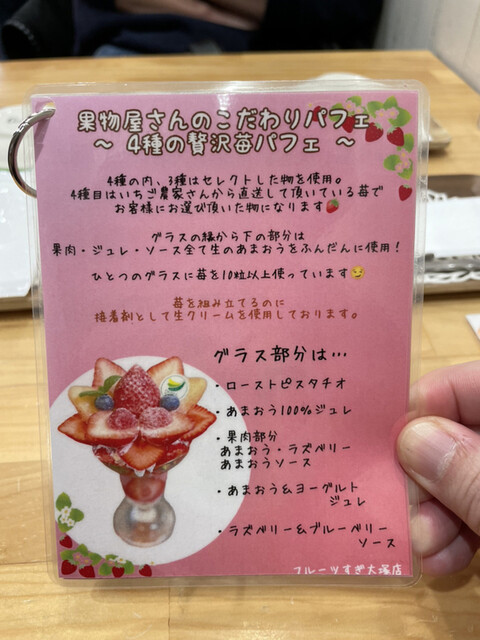 果物屋さんのこだわりパフェ
～ 4種の贅沢苺パフェ ～
4種の内、3種はセレクトした物を使用。
4種目はいちご農家さんから直送して頂いている苺で
お客様にお選び頂いた物になります🍓
グラスの縁から下の部分は
果肉・ジュレ・ソース全て生のあまおうをふんだんに使用！
ひとつのグラスに苺を10粒以上使っています😉
苺を組み立てるのに
接着剤として生クリームを使用しております。
グラス部分は…
・ローストピスタチオ
・あまおう100%ジュレ
・果肉部分
あまおう・ラズベリー
あまおうソース
・あまおう&ヨーグルト
ジュレ
・ラズベリー&ブルーベリー
ソース
フルーツすぎ大塚店